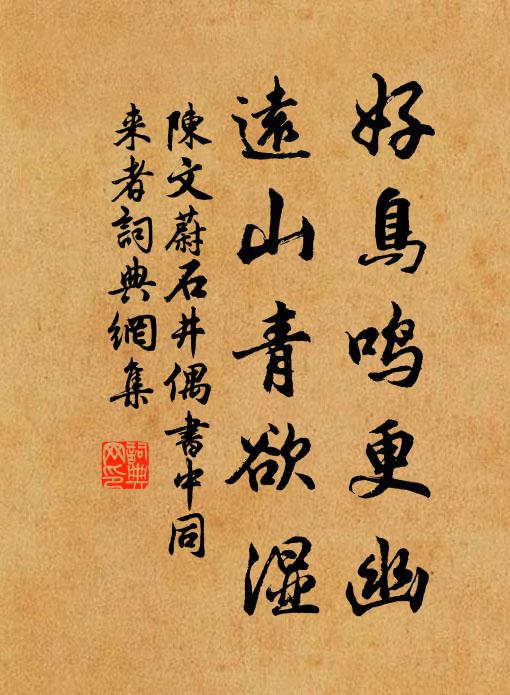 好鳥鳴更幽
遠山青欲濕
陳文蔚石井偶書中同
来者詞典網集
詞典網印